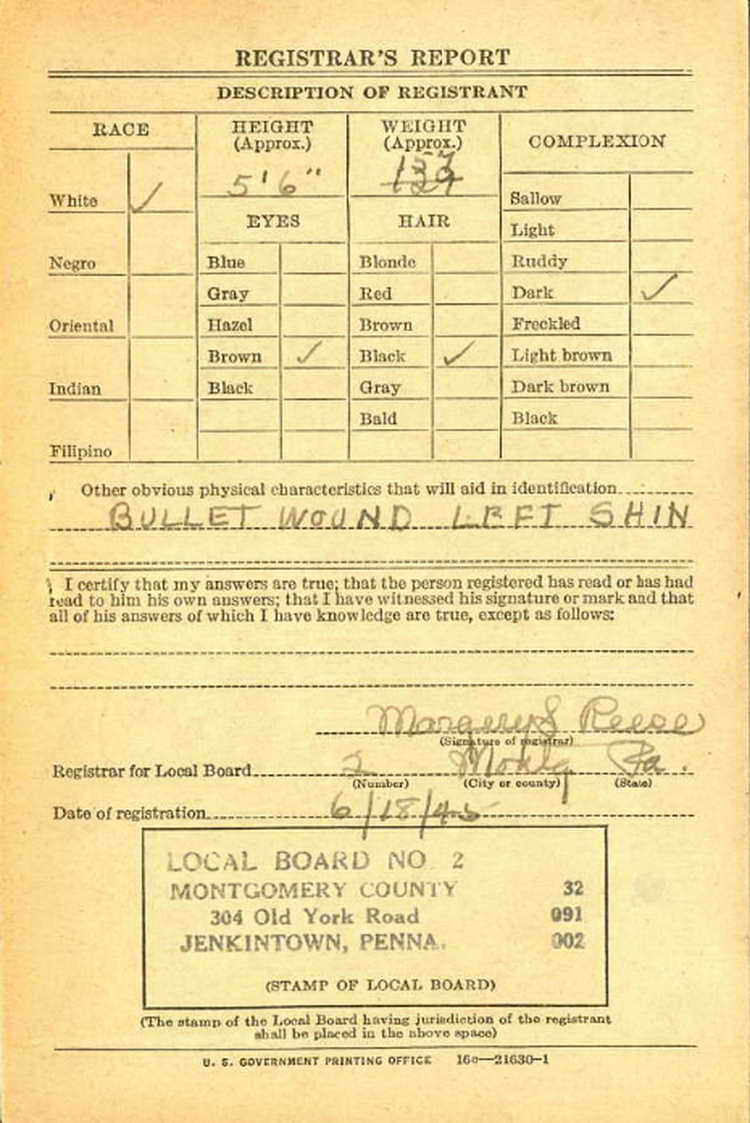 REGISTRAR'S REPORT
DESCRIPTION OF REGISTRANT
RACE
HEIGHT
(Approx.)
WEIGHT
(Approx.)
COMPLEXION
5'6"
White ✓
Sallow
EYES
HAIR
Light
Negro
Blue
Blonde
Ruddy
Gray
Red
Dark ✓
Oriental
Hazel
Brown
Freckled
Brown ✓
Black ✓
Light brown
Indian
Black
Gray
Dark brown
Bald
Black
Filipino
Other obvious physical characteristics that will aid in identification
BULLET WOUND LEFT SHIN
I certify that my answers are true; that the person registered has read or has had
read to him his own answers; that I have witnessed his signature or mark and that
all of his answers of which I have knowledge are true, except as follows:
Margery S Reese
(Signature of registrar)
Registrar for Local Board 2 Montg Pa.
(Number) (City or county) (State)
Date of registration 6/18/45
LOCAL BOARD NO. 2
MONTGOMERY COUNTY 32
304 Old York Road 091
JENKINTOWN, PENNA. 002
(STAMP OF LOCAL BOARD)
(The stamp of the Local Board having jurisdiction of the registrant
shall be placed in the above space)
U. S. GOVERNMENT PRINTING OFFICE 16c—21630-1